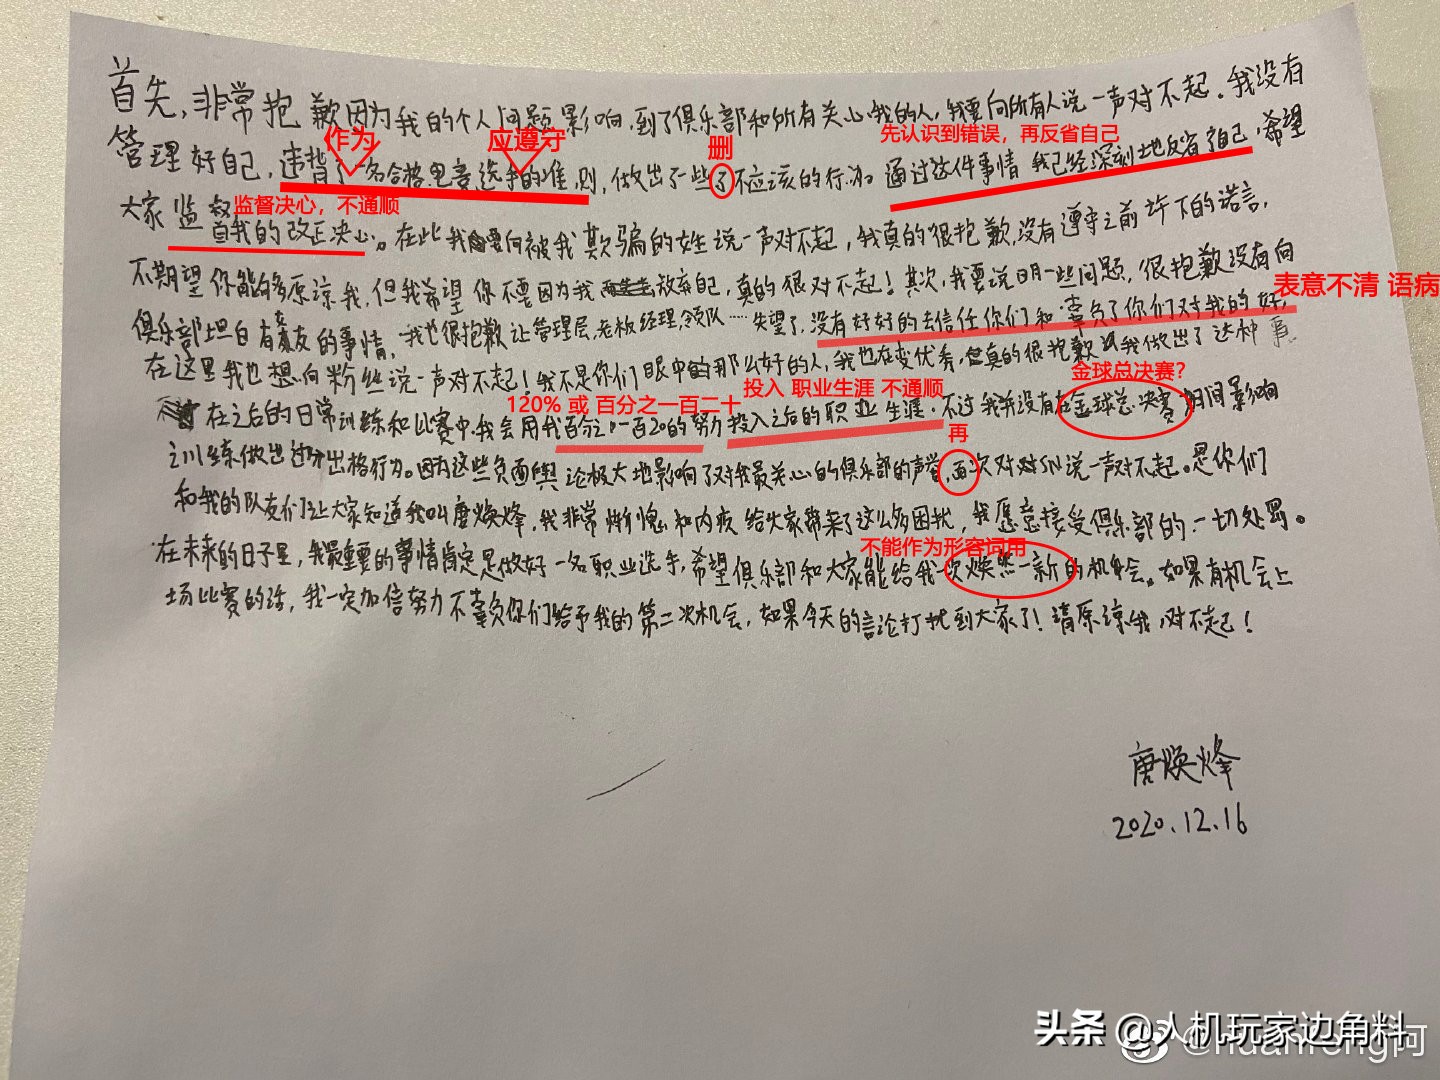 首先,非常抱歉因为我的个人问题影响到了俱乐部和所有关心我的人,我要向所有人说一声对不起.我没有
作为
应遵守
删
先认识到错误，再反省自己
管理好自己,违背了一名合格电竞选手的准则,做出了一些了不应该的行为。通过这件事情我已经深刻地反省了自己,希望
监督决心，不通顺
大家监督我的改正决心。在此我要向被我欺骗的女生说一声对不起,我真的很抱歉,没有遵守之前许下的诺言,
不期望你能够原谅我,但我希望你不要因为我放弃自己,真的很对不起!其次,我要说明一些问题,很抱歉没有向
表意不清 语病
俱乐部坦白有女友的事情,我也很抱歉让管理层,老板经理,领队……失望了,没有好好的去信任你们和辜负了你们对我的好,
在这里我也想向粉丝说一声对不起!我不是你们眼中的那么好的人,我也在变优秀,但真的很抱歉我做出了这种事
120% 或 百分之一百二十
投入 职业生涯 不通顺
金球总决赛?
在之后的日常训练和比赛中,我会用我百分之一百20的努力投入之后的职业生涯.不过我并没有在全球总决赛期间影响
再
训练做出过分出格行为。因为这些负面舆论极大地影响了对我最关心的俱乐部的声誉,再次对对SN说一声对不起。是你们
和我的队友们让大家知道我叫唐焕烽,我非常惭愧和内疚给大家带来了这么多困扰,我愿意接受俱乐部的一切处罚。
不能作为形容词用
在未来的日子里,我最重要的事情肯定是做好一名职业选手,希望俱乐部和大家能给我一次焕然一新的机会。如果有机会上
场比赛的话,我一定加倍努力不辜负你们给予我的第二次机会,如果今天的言论打扰到大家了!请原谅我,对不起!
唐焕烽
2020.12.16
头条 @人机玩家边角料
@huanfeng阿